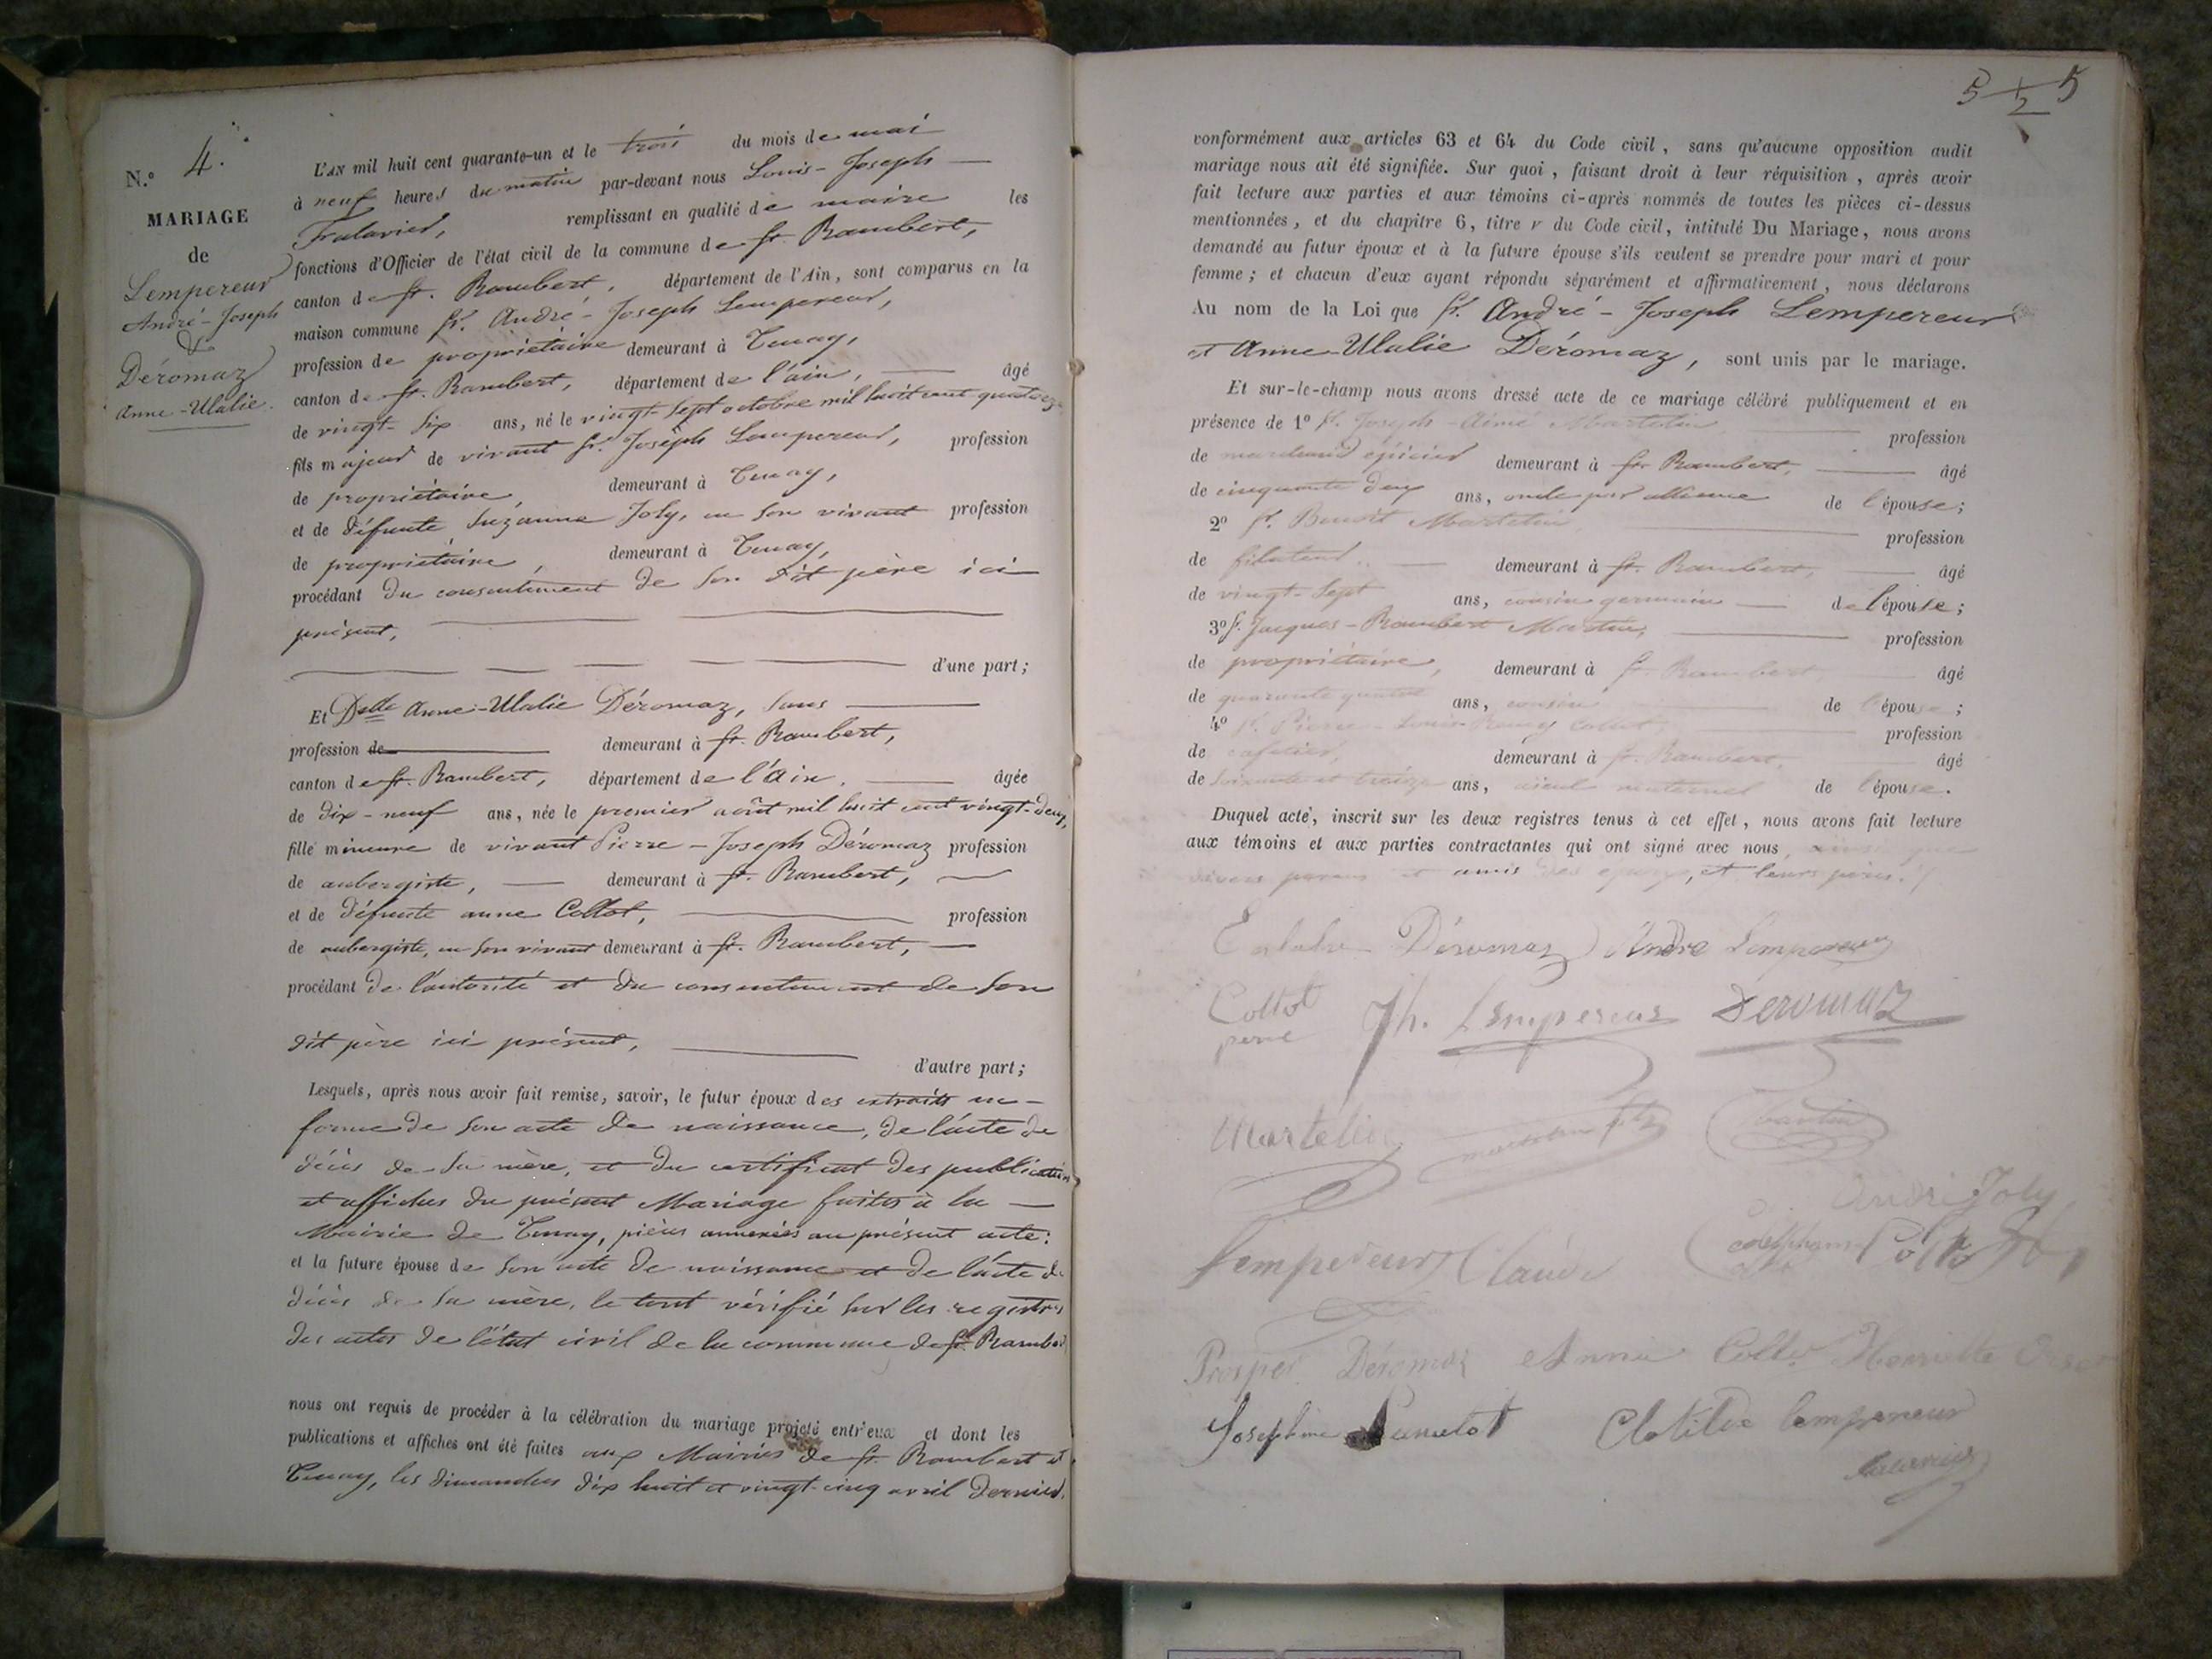 N.o 4.
MARIAGE
de
Lempereur
André-Joseph
&
Déromaz
Anne-Ulalie.
L'AN mil huit cent quarante-un et le trois du mois de mai
à neuf heures du matin par-devant nous Louis-Joseph
remplissant en qualité de maire les
fonctions d'Officier de l'état civil de la commune de St. Rambert,
canton de St. Rambert, département de l'Ain, sont comparus en la
maison commune Sr. André-Joseph Lempereur,
profession de propriétaire demeurant à Tenay,
canton de St. Rambert, département de l'ain, âgé
de vingt-six ans, né le vingt-sept octobre mil huit cent quatorze
fils majeur de vivant Sr. Joseph Lempereur, profession
de propriétaire, demeurant à Tenay,
et de défunte Suzanne Joly, en son vivant profession
de propriétaire, demeurant à Tenay,
procédant du consentement de son dit père ici
présent,
d'une part;
Et Delle Anne-Ulalie Déromaz, sans
profession de demeurant à St. Rambert,
canton de St. Rambert, département de l'Ain, âgée
de dix-neuf ans, née le premier août mil huit cent vingt-deux,
fille mineure de vivant Pierre-Joseph Déromaz profession
de aubergiste, demeurant à St. Rambert,
et de défunte anne Collot, profession
de aubergiste, en son vivant demeurant à St. Rambert,
procédant de l'autorité et du consentement de son
dit père ici présent,
d'autre part;
Lesquels, après nous avoir fait remise, savoir, le futur époux des extraits en
forme de son acte de naissance, de l'acte de
décès de sa mère, et du certificat des publications
et affiches du présent Mariage faites à la
Mairie de Tenay, pièces annexées au présent acte:
et la future épouse de son acte de naissance et de l'acte de
décès de sa mère, le tout vérifié sur les registres
des actes de l'état civil de la commune de St. Rambert
nous ont requis de procéder à la célébration du mariage projeté entr'eux et dont les
publications et affiches ont été faites aux Mairies de St. Rambert et
Tenay, les dimanches dix huit et vingt-cinq avril dernier,
5
conformément aux articles 63 et 64 du Code civil, sans qu'aucune opposition audit
mariage nous ait été signifiée. Sur quoi, faisant droit à leur réquisition, après avoir
fait lecture aux parties et aux témoins ci-après nommés de toutes les pièces ci-dessus
mentionnées, et du chapitre 6, titre v du Code civil, intitulé Du Mariage, nous avons
demandé au futur époux et à la future épouse s'ils veulent se prendre pour mari et pour
femme; et chacun d'eux ayant répondu séparément et affirmativement, nous déclarons
Au nom de la Loi que Sr. André-Joseph Lempereur
et Anne-Ulalie Déromaz, sont unis par le mariage.
Et sur-le-champ nous avons dressé acte de ce mariage célébré publiquement et en
présence de 1o Sr. Joseph-Aimé Martelin profession
de marchand épicier demeurant à St. Rambert, âgé
de cinquante deux ans, oncle par alliance de l'épouse;
2o Sr. Benoit Martelin profession
de filateur demeurant à St. Rambert, âgé
de vingt-sept ans, cousin germain de l'épouse;
3o Sr. Jacques-Rambert Martin, profession
de propriétaire, demeurant à St. Rambert, âgé
de quarante quatre ans, cousin de l'épouse;
4o Sr. Pierre-Louis Collot profession
de cafetier, demeurant à St. Rambert, âgé
de soixante et treize ans, aïeul maternel de l'épouse.
Duquel acte, inscrit sur les deux registres tenus à cet effet, nous avons fait lecture
aux témoins et aux parties contractantes qui ont signé avec nous, ainsi que
divers parens et amis des époux, et leurs pères.
Déromaz André Lempereur
Collot
père Jh. Lempereur Deromaz
Martelin Martelin fils Martin
André Joly
Lempereur Claude
Prosper Déromaz Anna Henriette
Joséphine Clotilde Lempereur